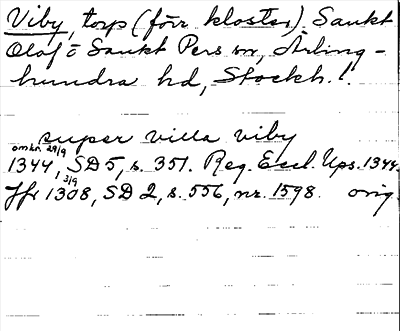 Viby, torp (förr kloster). Sankt
Olof o Sankt Pers sn, Ärling-
hundra hd, Stockh. l.
super villa viby
omkr. 29/9
1344, SD 5, s. 351. Reg. Eccl. Ups. 1344.
Jfr 1308, 1/3/9 SD 2, s. 556, nr. 1598. orig